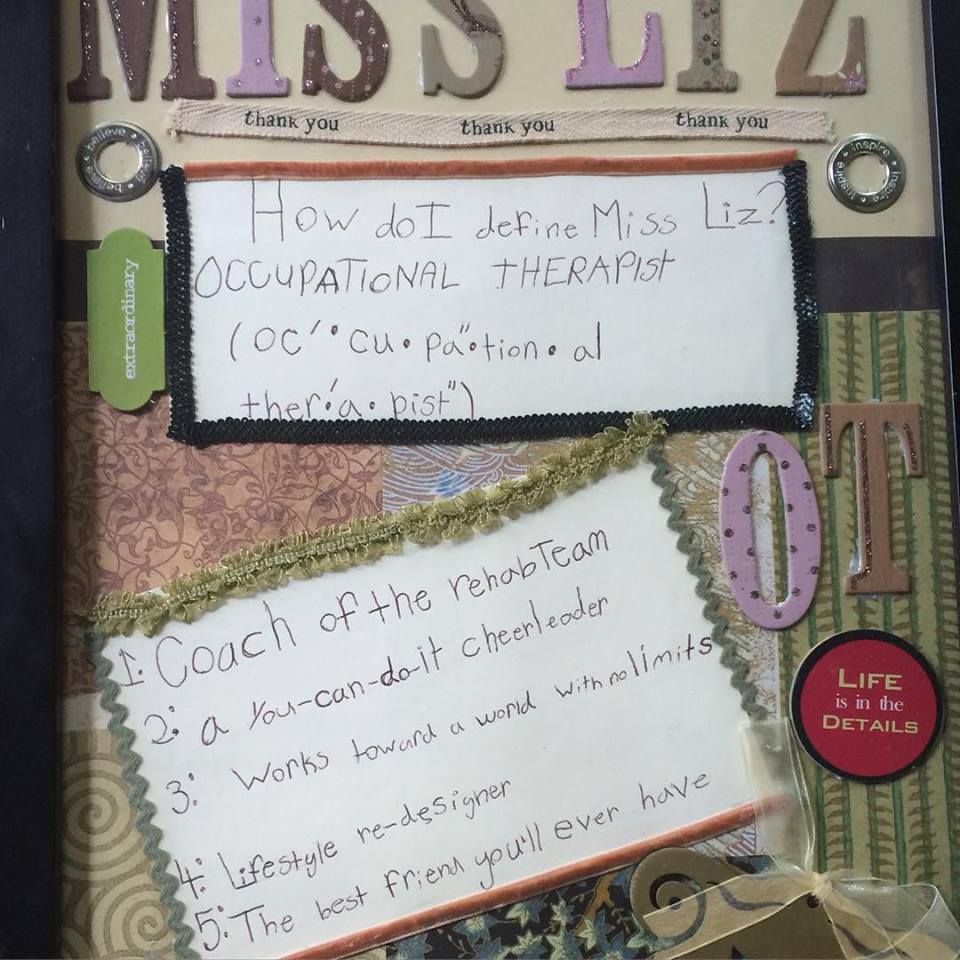 MISS LIZ
thank you thank you thank you
believe • believe • believe
inspire • inspire • inspire
How do I define Miss Liz?
OCCUPATIONAL THERAPIST
(oc′• cu • pa″• tion • al
ther′• a • pist″)
extraordinary
OT
1: Coach of the rehab Team
2: a You-can-do-it cheerleader
3: Works toward a world with no limits
4: Lifestyle re-designer
5: The best friend you'll ever have
LIFE
is in the
DETAILS